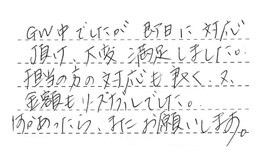 GW中でしたが 即日に対応
頂け、大変満足しました。
担当の方の対応も良く、又、
金額もリーズナブルでした。
何かあったら、またお願いします。